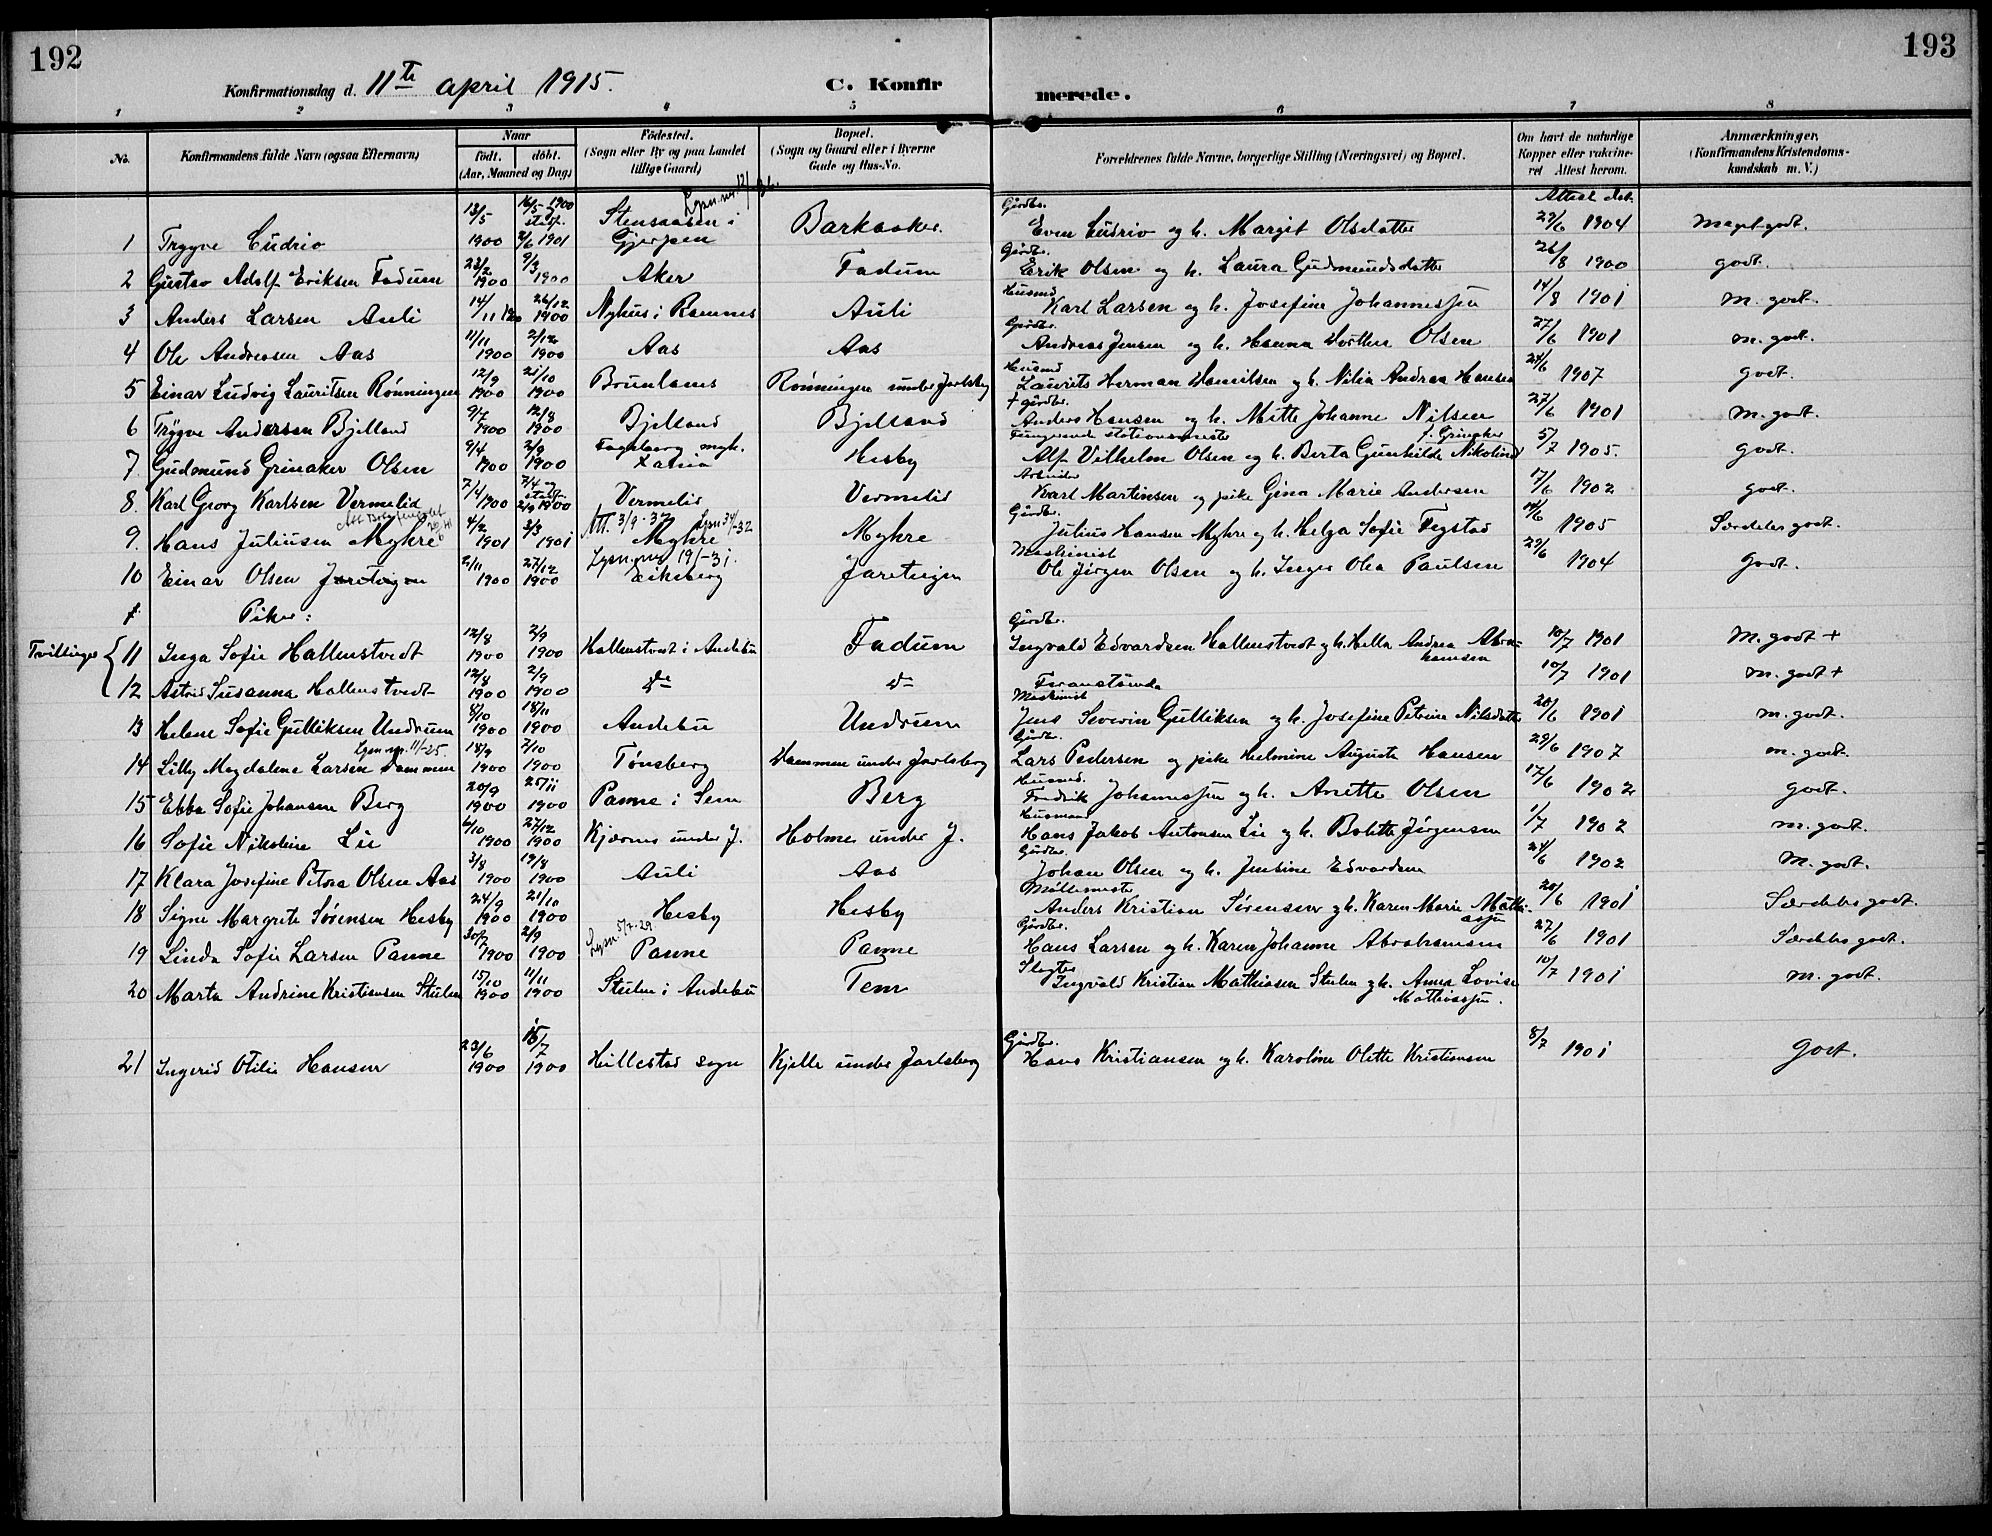 192
193
Konfirmationsdag d. 11te april 1915.
C. Konfir
merede.
1 2 3 4 5 6 7 8
No. Konfirmandens fulde Navn (ogsaa Efternavn) Naar födt. döbt. (Aar, Maaned og Dag) Födested. (Sogn eller By og paa Landet tillige Gaard) Bopæl. (Sogn og Gaard eller i Byerne Gade og Hus-No. Forældrenes fulde Navne, borgerlige Stilling (Næringsvei) og Bopæl. Om havt de naturlige Kopper eller vakcineret Attest herom. Anmærkninger. (Konfirmandens Kristendomskundskab m. V.)
1 Trygve 13/5 1900 16/5 1900 2/6 1901 Stensaasen i Gjerpen Barkaaker. Gårdbr. Even og h. Margit Olsdatter 29/6 1904 Meget godt.
2 Gustav Adolf Eriksen Fadum 23/2 1900 9/3 1900 Aker Fadum Gårdbr. Erik Olsen og h. Laura Gudmundsdatter 26/8 1900 godt.
3 Anders Larsen Auli 14/11 1900 26/12 1900 Nyhus i Ramnes Auli Husmd. Karl Larsen og h. Josefine Johannessen 14/8 1901 m. godt.
4 Ole Andreasen Aas 11/11 1900 2/12 1900 Aas Aas Gårdbr. Andreas Jensen og h. Hanna Dorthea Olsen 27/6 1901 m. godt.
5 Einar Ludvig Lauritsen Rönningen 12/9 1900 21/10 1900 Brunlanes Rönningen under Jarlsberg Husmd Laurits Herman Danielsen og h. Nilia Andrea Hansen 24/6 1907 godt.
6 Trygve Andersen Bjelland 9/7 1900 12/8 1900 Bjelland Bjelland + gårdbr. Anders Hansen og h. Mette Johanne Nilsen 27/6 1901 m. godt.
7 Gudmund Grinaker Olsen 9/4 1900 2/9 1900 Hesby Fungerende stationsmester Alf Vilhelm Olsen og h. Berta Gunhilde Nikoline f. Grinaker 5/7 1905. godt.
8. Karl Georg Karlsen Vermelid 7/4 1900 7/4 og 2/9 1900 Vermelid Vermelid Arbeider Karl Martinsen og pike Gina Marie Andersen 17/6 1902 godt.
9. Hans Juliusen Myhre 4/2 1901 3/3 1901 Att. 3/9-37 Myhre Myhre Gårdbr. Julius Hansen Myhre og h. Helga Sofie Fegstad 14/6 1905 Særdeles godt.
10 Einar Olsen Jareteigen 2/11 1900 27/12 1900 Lysn. 19/-31. Eikeberg Jareteigen Maskinist Ole Jörgen Olsen og h. Inger Olea Paulsen 29/6 1904 Godt.
Piker:
Tvillinger
11 Inga Sofie Hallenstvedt 12/8 1900 2/9 1900 Hallenstvedt i Andebu Fadum Gårdbr. Ingvald Edvardsen Hallenstvedt og h. Hella Andrea Abrahamsen 10/7 1901 M. godt +
12 Astrid Susanna Hallenstvedt 12/8 1900 2/9 1900 do do Foranstående 10/7 1901 m. godt +
13 Helene Sofie Gulliksen Undrum 8/10 1900 18/11 1900 Andebu Undrum Maskinist Jens Severin Gulliksen og h. Josefine Petrine Nilsdatter 20/6 1901 m. godt.
14 Lilly Magdalene Larsen Dammen Lysn. 11/-25. 18/9 1900 7/10 1900 Tönsberg Dammen under Jarlsberg Gårdbr. Lars Pedersen og pike Helmine Augusta Hansen 29/6 1907 m. godt.
15 Ebba Sofie Johansen Berg 20/9 1900 25/11 1900 Panne i Sem Berg Husmd. Fredrik Johannessen og h. Anette Olsen 17/6 1902 godt.
16 Sofie Nikoline Lie 6/10 1900 27/12 1900 Kjærnes under J. Holmen under J. Husmann Hans Jakob Antonsen Lie og h. Bolette Jörgensen 1/7 1902 m. godt.
17 Klara Josefine Petrea Olsen Aas 3/8 1900 19/8 1900 Auli Aas Gårdbr. Johan Olsen og h. Jensine Edvardsen 24/6 1902 M. godt.
18 Signe Margrete Sörensen Hesby 24/9 1900 21/10 1900 Hesby Hesby Möllemester Anders Kristian Sörensen og h. Karen Marie Mathiassen 20/6 1901 Særdeles godt.
19 Linda Sofie Larsen Panne 30/7 1900 2/9 1900 Lysn. 5/7-29. Panne Panne Gårdbr. Hans Larsen og h. Karen Johanne Abrahamsen 27/6 1901 Særdeles godt.
20 Marta Andrine Kristiansen Stulen 15/10 1900 11/11 1900 Stulen i Andebu Tem Slagter Ingvald Kristian Mathiasen Stulen og h. Anna Lovise Mathiassen. 10/7 1901 m. godt.
21 Ingerid Otilie Hansen 23/6 1900 15/7 1900 Hillestad sogn Kjelle under Jarlsberg Gårdbr. Hans Kristiansen og h. Karoline Olette Kristiansen 8/7 1901 Godt.